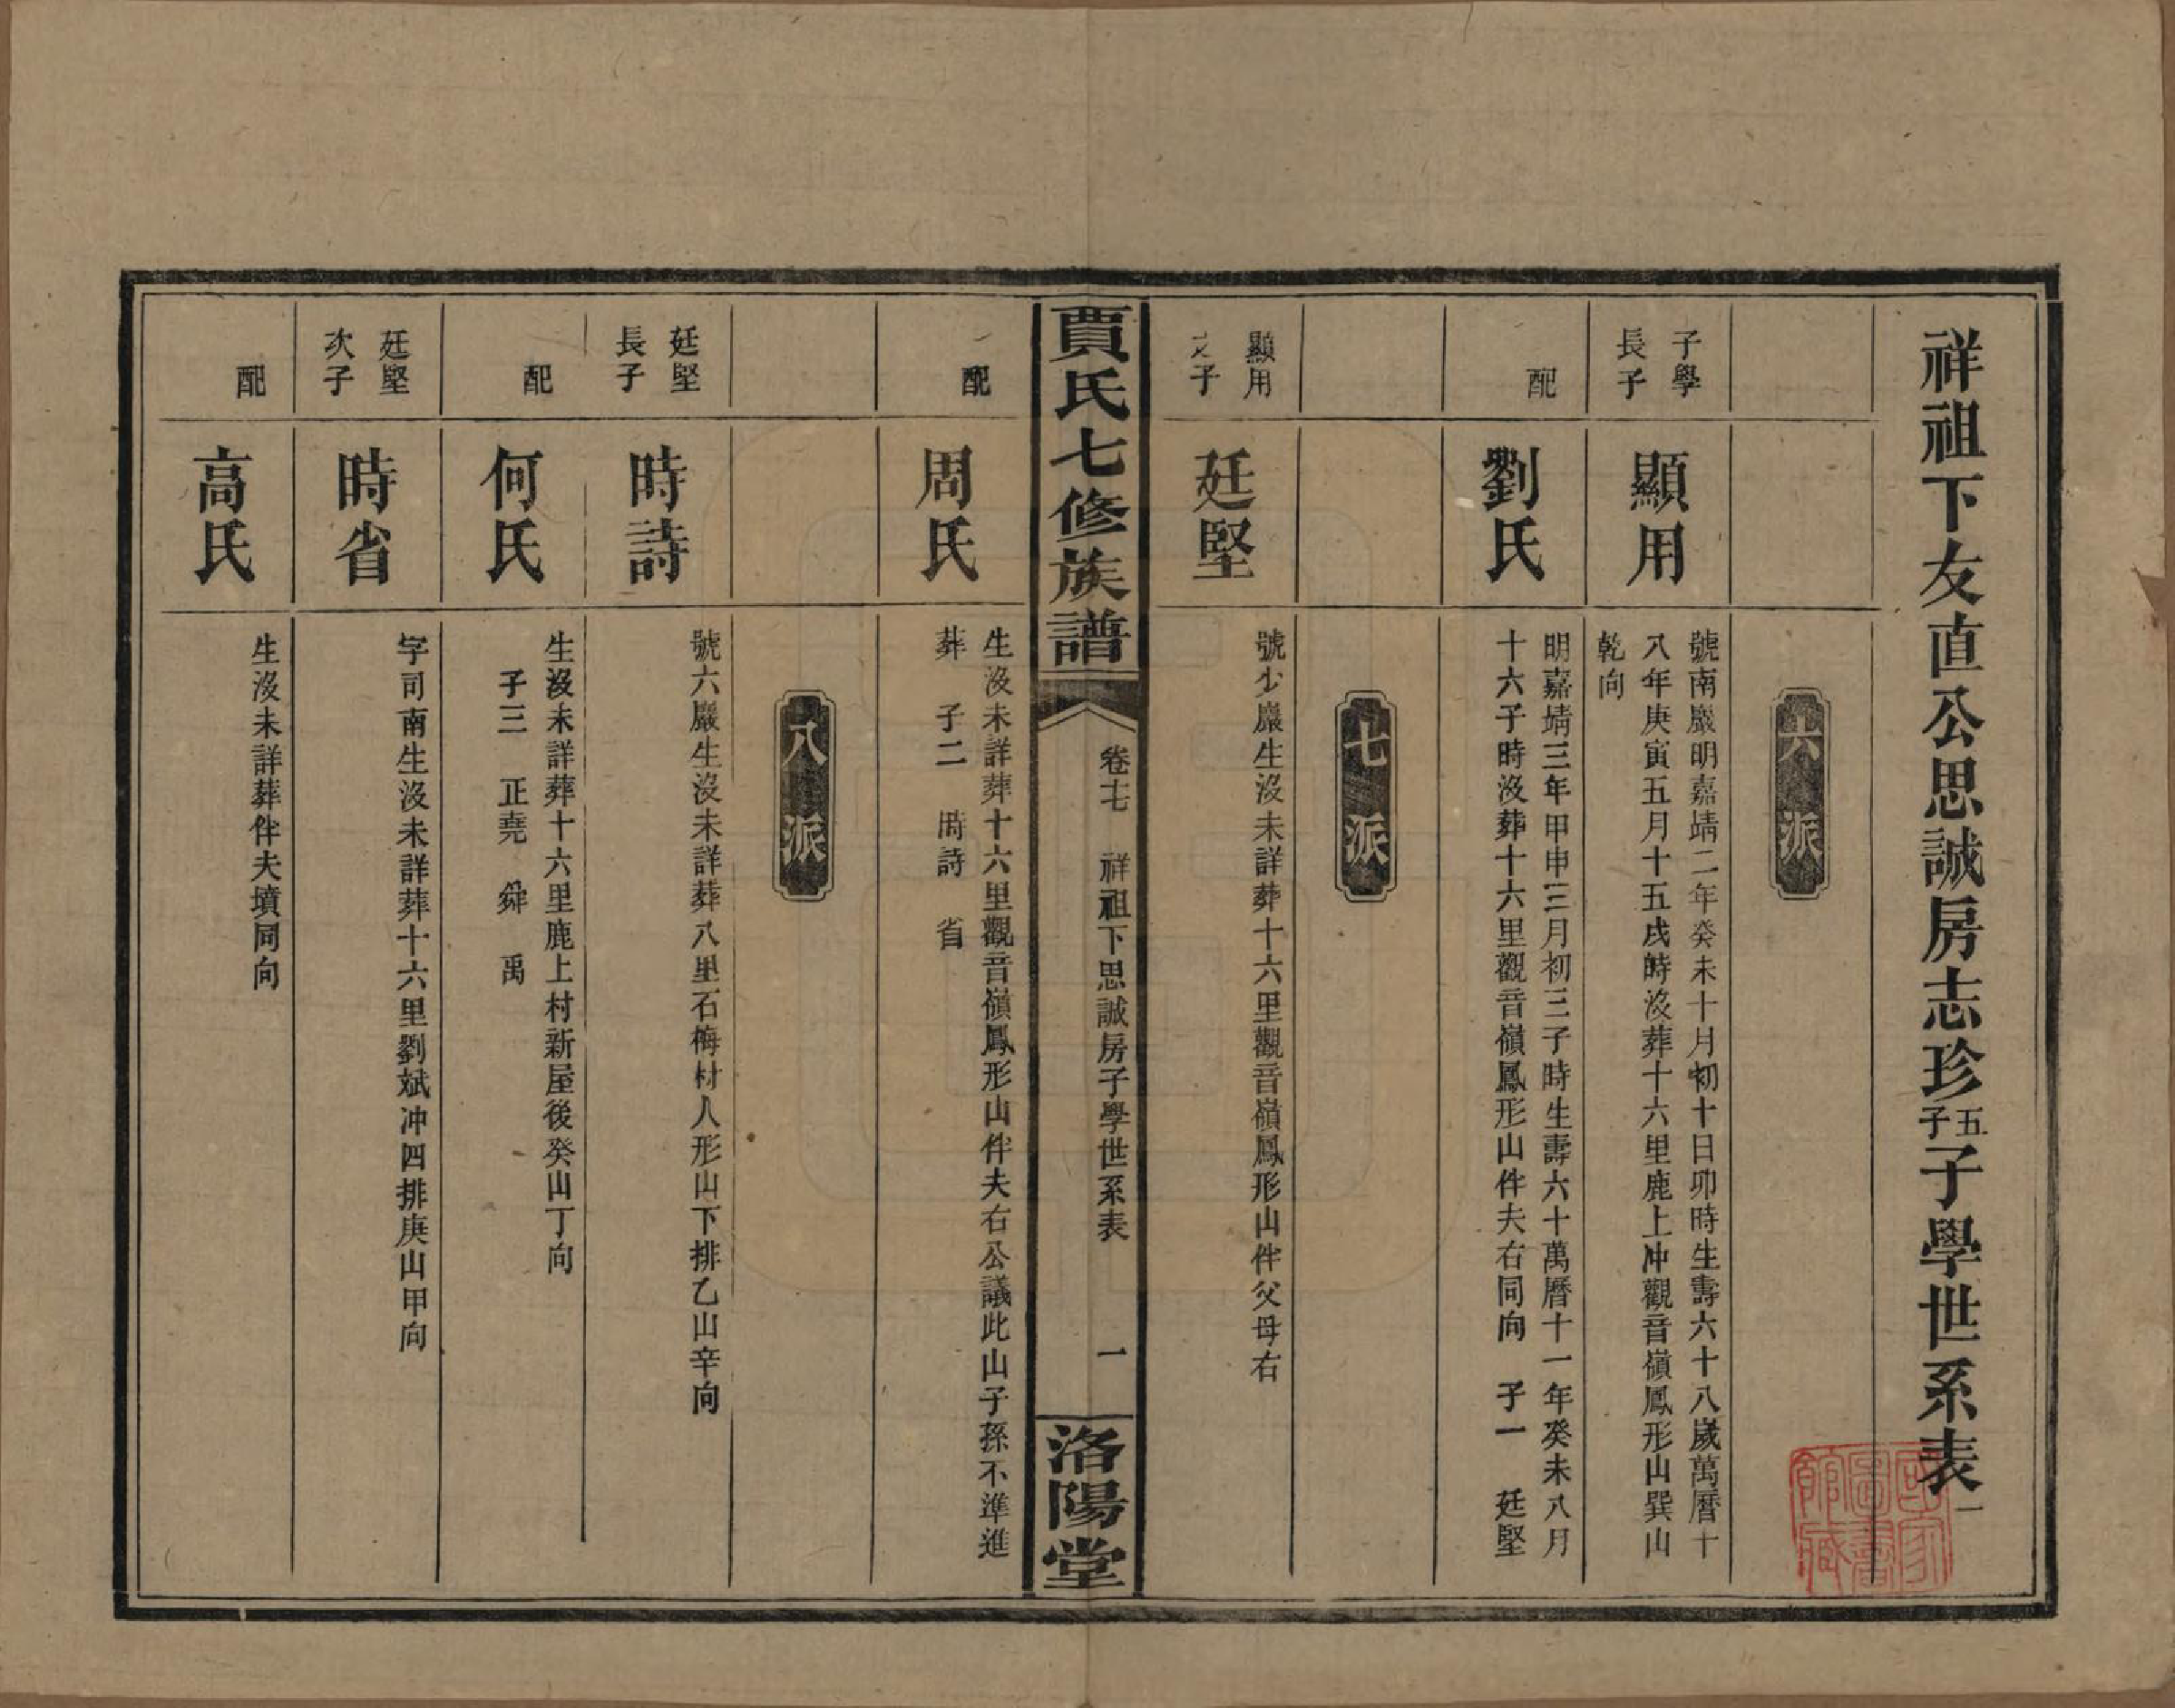 祥祖下友直公思誠房志珍五子子學世系表一
六派
子學
長子
顯用
號南嚴明嘉靖二年癸未十月初十日卯時生壽六十八歲萬曆十
八年庚寅五月十五戌時沒葬十六里鹿上冲觀音嶺鳳形山巽山
乾向
配
劉氏
明嘉靖三年甲申三月初三子時生壽六十萬曆十一年癸未八月
十六子時沒葬十六里觀音嶺鳳形山伴夫右同向 子一 廷堅
七派
顯用
之子
廷堅
號少巖生沒未詳葬十六里觀音嶺鳳形山伴父母右
賈氏七修族譜
卷十七 祥祖下思誠房子學世系表 一
洛陽堂
配
周氏
生沒未詳葬十六里觀音嶺鳳形山伴夫右公議此山子孫不準進
葬 子二 時詩 省
八派
廷堅
長子
時詩
號六巖生沒未詳葬八里石梅村人形山下排乙山辛向
配
何氏
生沒未詳葬十六里鹿上村新屋後癸山丁向
子三 正堯 舜 禹
廷堅
次子
時省
字司南生沒未詳葬十六里劉斌冲四排庚山甲向
配
高氏
生沒未詳葬伴夫墳同向
國家圖書館藏